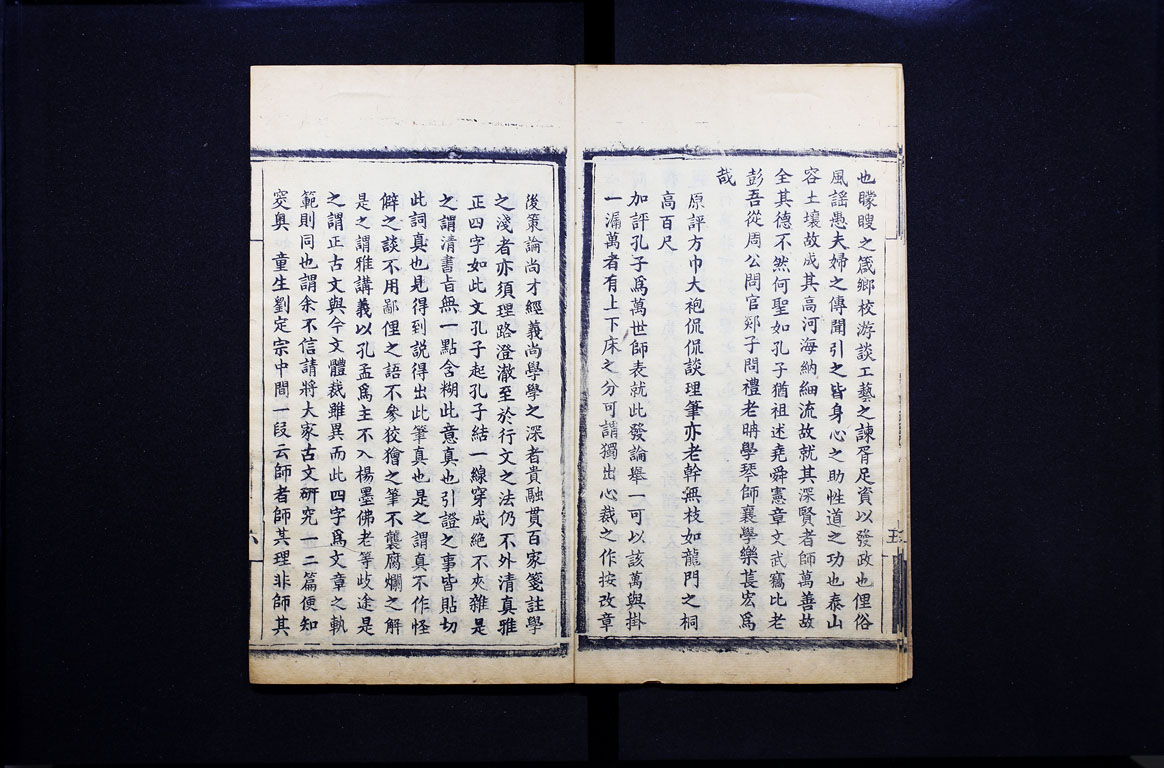 也矇瞍之箴鄉校游談工藝之諫胥足資以發政也俚俗
風謡愚夫婦之傳聞引之皆身心之助性道之功也泰山
容土壤故成其高河海納細流故就其深賢者師萬善故
全其德不然何聖如孔子猶祖述堯舜憲章文武竊比老
彭吾從周公問官郯子問禮老聃學琴師襄學樂萇宏爲
哉
原評方巾大袍侃侃談理筆亦老幹無枝如龍門之桐
高百尺
加評孔子爲萬世師表就此發論舉一可以該萬與掛
一漏萬者有上下床之分可謂獨出心裁之作按改章
五
後策論尚才經義尚學學之深者貴融貫百家箋註學
之淺者亦須理路澄澈至於行文之法仍不外清真雅
正四字如此文孔子起孔子結一線穿成絶不夾雜是
之謂清書旨無一點含糊此意真也引證之事皆貼切
此詞真也見得到説得出此筆真也是之謂真不作怪
僻之談不用鄙俚之語不參狡獪之筆不襲腐爛之解
是之謂雅講義以孔孟爲主不入楊墨佛老等歧途是
之謂正古文與今文體裁雖異而此四字爲文章之軌
範則同也謂余不信請將大家古文研究一二篇便知
窔奥 童生劉定宗中間一段云師者師其理非師其
六